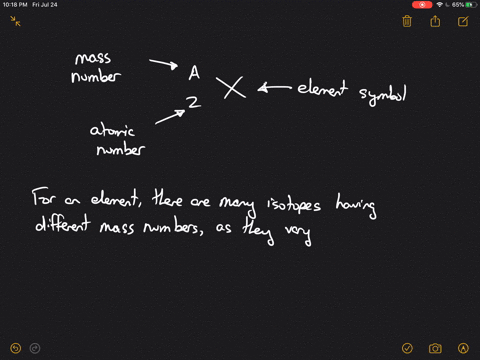 10:18 PM Fri Jul 24
65%
mass
number
A
Z
X
element symbol
atomic
number
For an element, there are many isotopes having
different mass numbers, as they vary